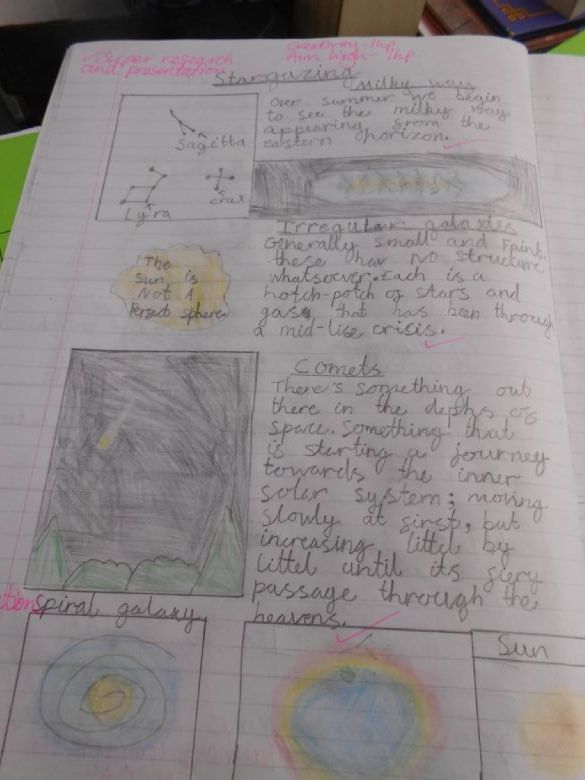 ✓Super research
and presentation
Creativity - 1hp
Aim high - 1hp
Stargazing
Milky way
Over summer we begin
to see the milky way
appearing from the
eastern chorizon.
Sagitta
Lyra
crux
Irregular galaxies
Generally small and faint,
these hav no structure
whatsoever. Each is a
hotch-potch of stars and
gas, that has been through
a mid-life crisis.
The
Sun is
Not A
Perfect sphere
Comets
There's something out
there in the depths of
space. Something that
is starting a journey
towards the inner
solar system; moving
slowly at first, but
increasing littel by
littel until its fiery
passage through the
heavens.
spiral galaxy
Sun